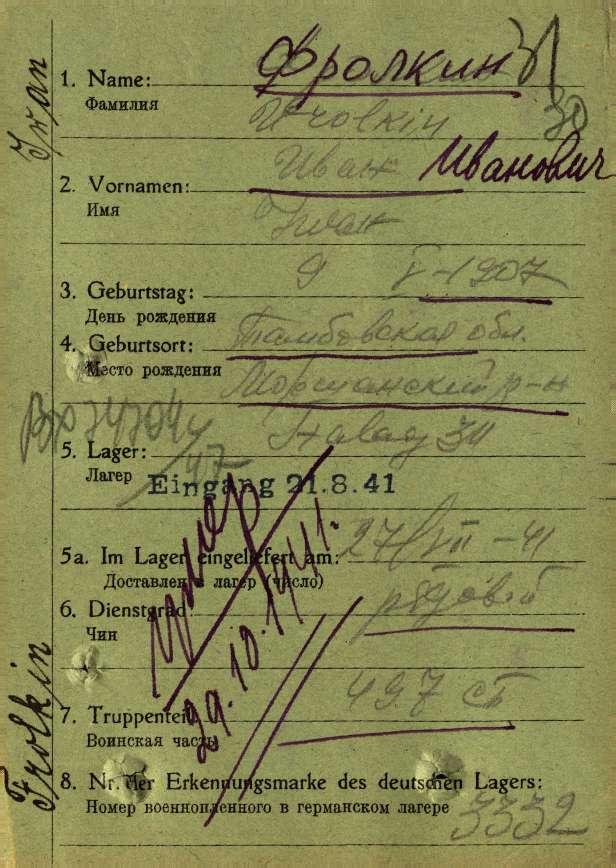 Iwan
Frolkin
1. Name: Фролкин
Фамилия
2. Vornamen: Иван Иванович
Имя
Iwan
3. Geburtstag: 9 V-1907
День рождения
4. Geburtsort: Тамбовская обл.
Место рождения
р-н
5. Lager: Stalag
Лагер
Eingang 21.8.41
5a. Im Lager eingeliefert am: 27/VII-41
Доставлен в лагер (число)
умер
29.10.1941.
6. Dienstgrad:
Чин
7. Truppenteil: 497
Воинская часть
8. Nr. der Erkennungsmarke des deutschen Lagers:
Номер военнопленного в германском лагере 3332